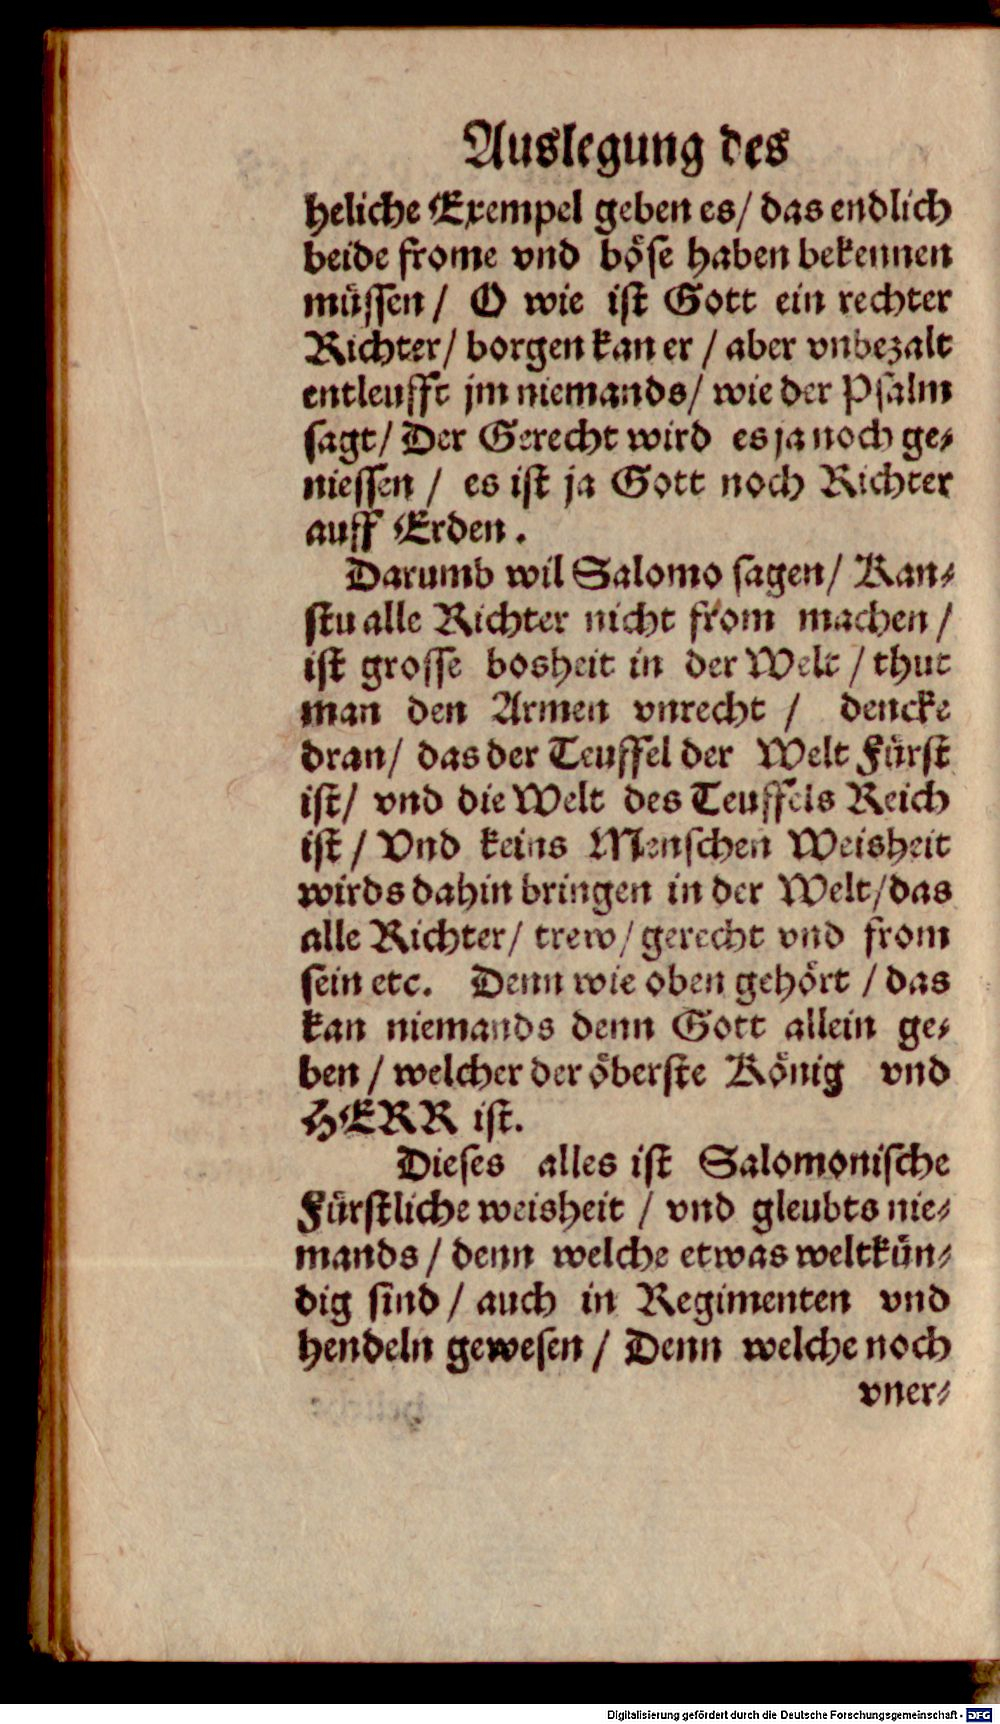 Auslegung des
heliche Exempel geben es/ das endlich
beide frome vnd böse haben bekennen
müssen / O wie ist Gott ein rechter
Richter/ borgen kan er / aber vnbezalt
entleufft jm niemands/ wie der Psalm
sagt/ Der Gerecht wird es ja noch ge-
niessen / es ist ja Gott noch Richter
auff Erden.
Darumb wil Salomo sagen/ Kan-
stu alle Richter nicht from machen /
ist grosse bosheit in der Welt / thut
man den Armen vnrecht / dencke
dran/ das der Teuffel der Welt Fürst
ist/ vnd die Welt des Teuffels Reich
ist / Vnd keins Menschen Weisheit
wirds dahin bringen in der Welt/das
alle Richter/ trew/ gerecht vnd from
sein etc. Denn wie oben gehört / das
kan niemands denn Gott allein ge-
ben / welcher der öberste König vnd
HERR ist.
Dieses alles ist Salomonische
Fürstliche weisheit / vnd gleubts nie-
mands / denn welche etwas weltkün-
dig sind / auch in Regimenten vnd
hendeln gewesen / Denn welche noch
vner-
Digitalisierung gefördert durch die Deutsche Forschungsgemeinschaft - DFG